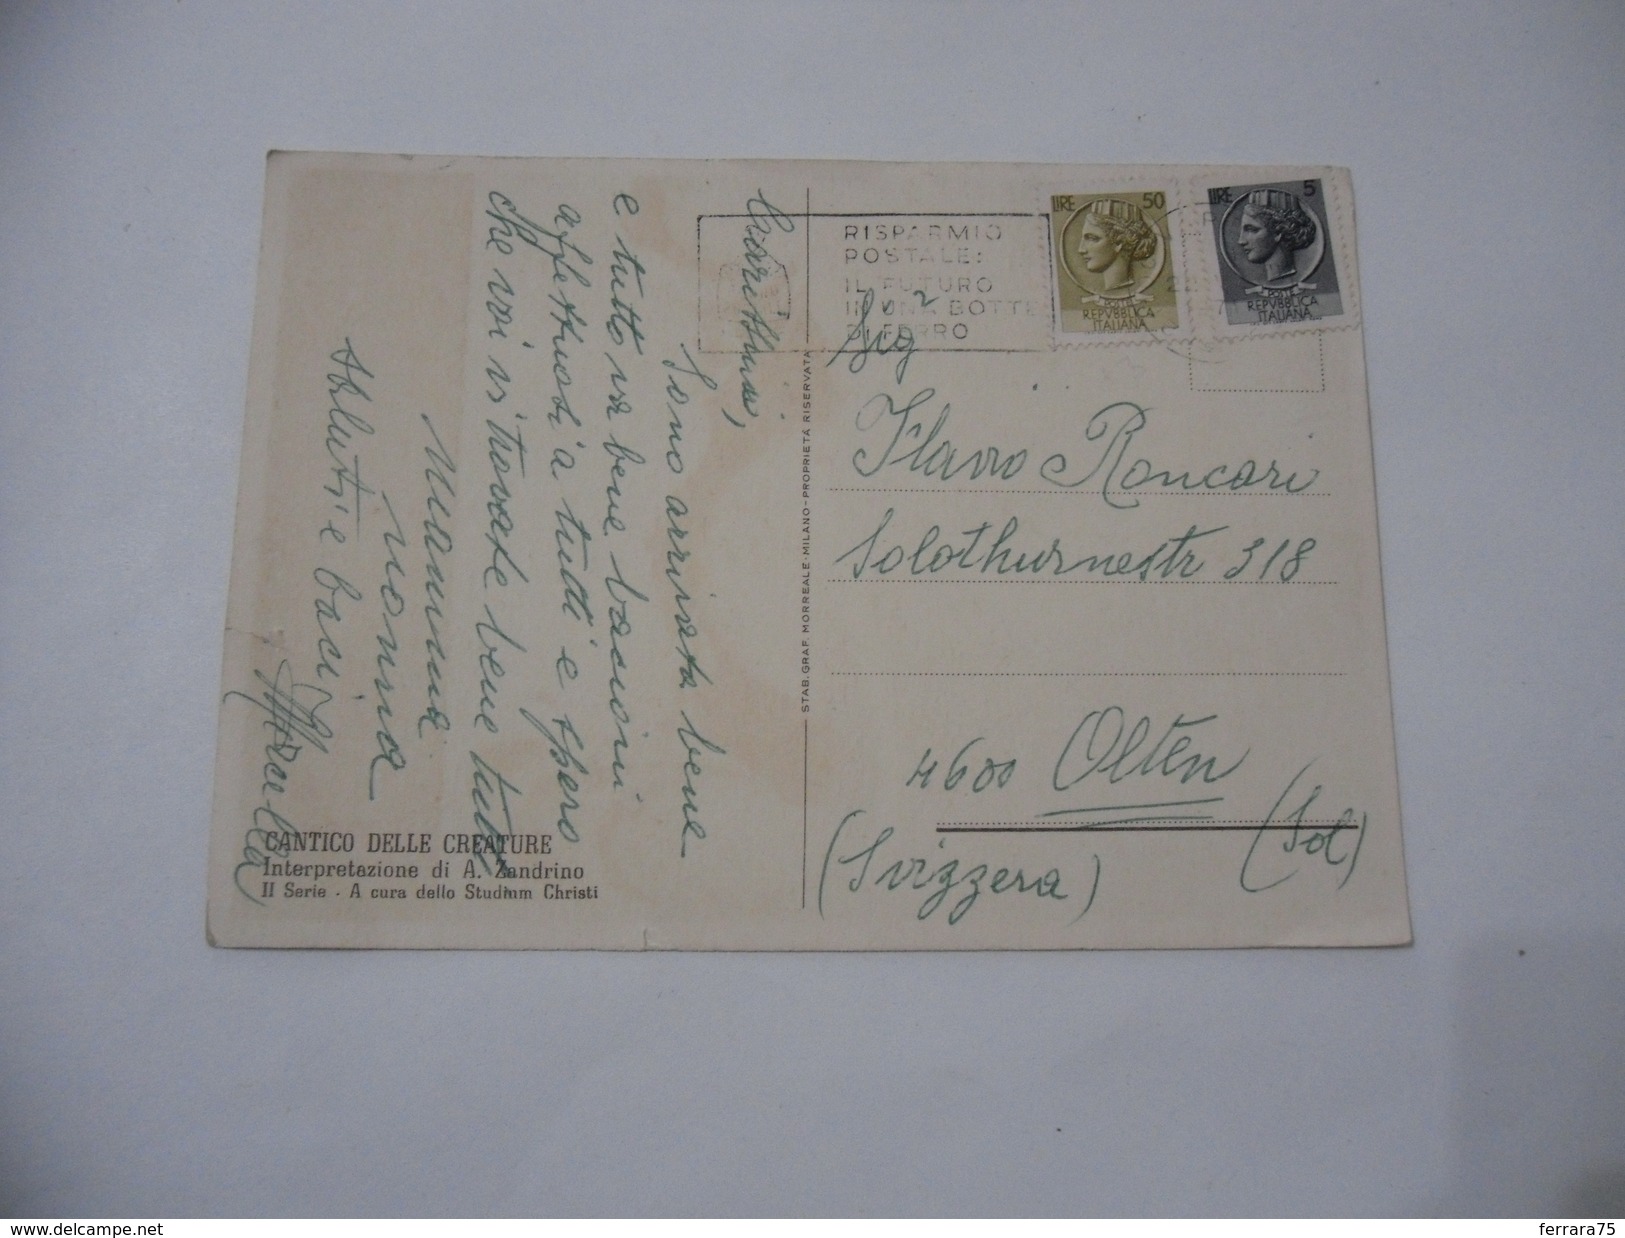 Carissimi,
Sono arrivata bene
e tutto va bene bacioni
affettuosi a tutti e spero
che voi vi trovate bene tutti
Mamma
nonna
Saluti e baci
Mirella
CANTICO DELLE CREATURE
Interpretazione di A. Zandrino
II Serie - A cura dello Studium Christi
STAB. GRAF. MORREALE - MILANO - PROPRIETÀ RISERVATA
RISPARMIO
POSTALE:
IL FUTURO
IN UNA BOTTE
DI FERRO
LIRE 50
POSTE DI
REPVBBLICA
ITALIANA
LIRE 5
POSTE DI
REPVBBLICA
ITALIANA
Sig
Flavio Roncari
Solothurnestr 318
4600 Olten
(Sol)
(Svizzera)
www.delcampe.net
ferrara75